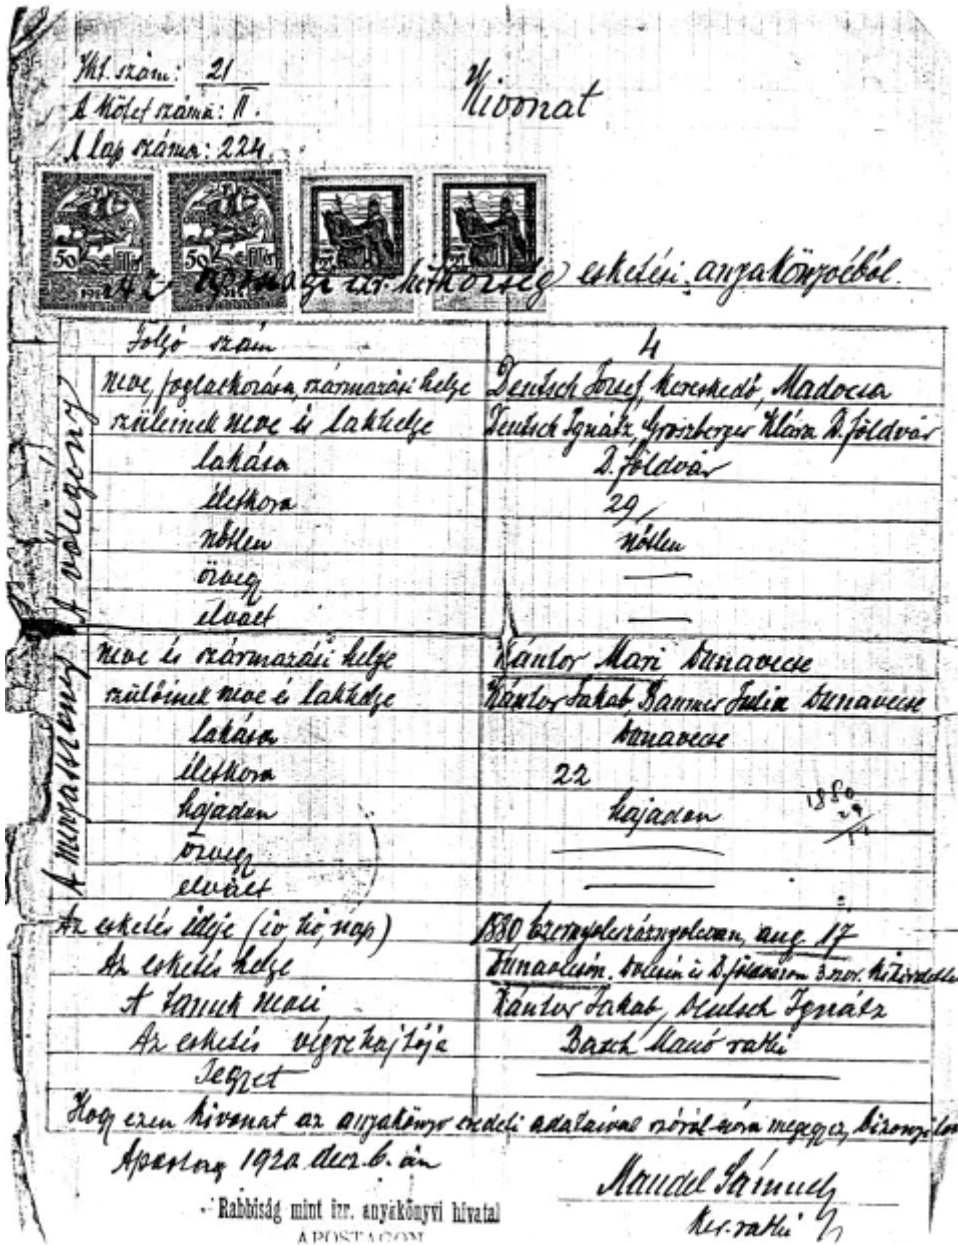 Ikt. szám: 21
A Kötet száma: II.
A lap száma: 224.
Kivonat
50 fillér 1914
50 fillér
izr. hitközség esketési anyakönyvéből.
Folyó szám 4
A vőlegény
neve, foglalkozása, származási helye Deutsch József, Kereskedő, Madocsa
szüleinek neve és lakhelye Deutsch Ignátz, Groszberger Klára D. földvár
lakása D. földvár
életkora 29
nőtlen nőtlen
özvegy —
elvált —
A menyasszony
neve és származási helye Kántor Mari Dunavecse
szüleinek neve és lakhelye Kántor Jakab, Julia Dunavecse
lakása Dunavecse
életkora 22
hajadon hajadon
1880
29
özvegy —
elvált —
Az esketés ideje (év, hó, nap) 1880 Ezernyolcszáznyolcvan, aug 17
Az esketés helye és D. földváron 3 szor.
A tanuk nevei Kántor Jakab, Deutsch Ignátz
Az esketés végrehajtója Basch Manó rabbi
Jegyzet —
Hogy ezen kivonat az anyakönyv eredeti adataival szóról szóra megegyez,
Apostag 1920 decz 6. án
Mandel Sámuel
Ker. rabbi
Rabbiság mint izr. anyakönyvi hivatal
APOSTAGON